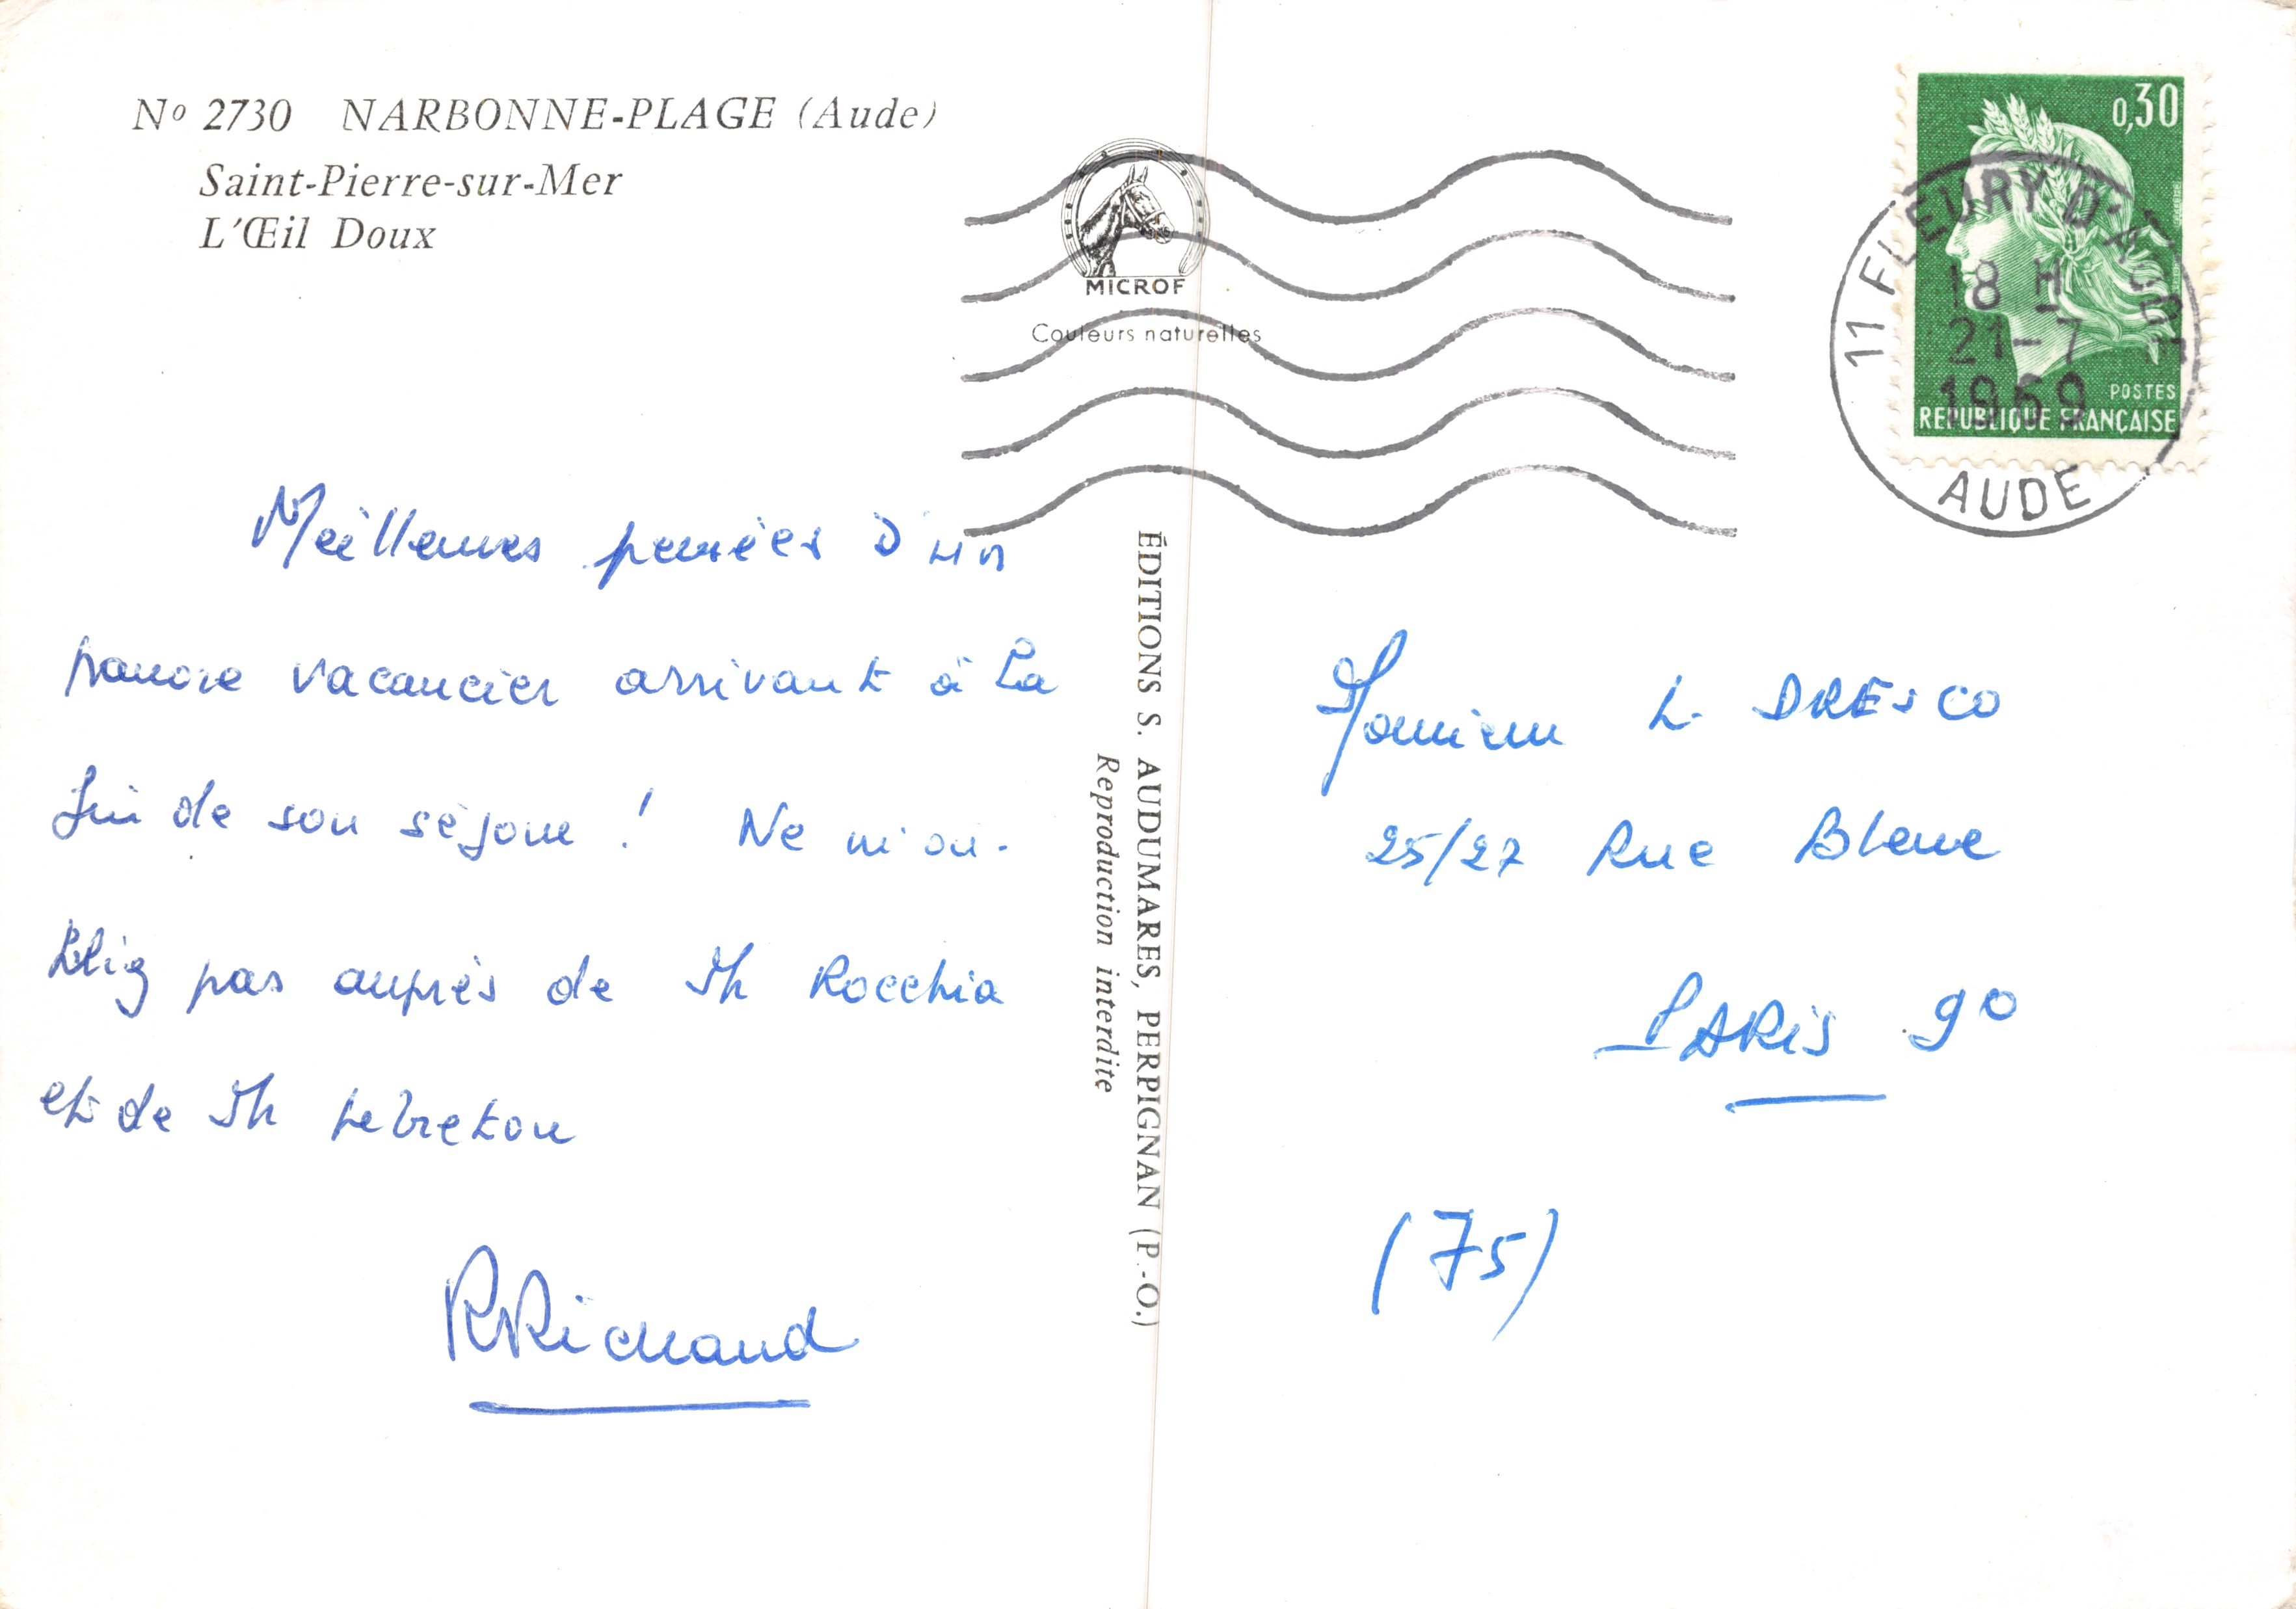 Nº 2730 NARBONNE-PLAGE (Aude)
Saint-Pierre-sur-Mer
L'Œil Doux
MICROF
Couleurs naturelles
0,30
POSTES
REPUBLIQUE FRANÇAISE
11 FLEURY D'AUDE
18 H
21-7
1969
AUDE
Meilleures pensées d'un
pauvre vacancier arrivant à la
fin de son séjour ! Ne m'ou-
bliez pas auprès de Mr Rocchia
et de Mr Lebreton
RRichaud
ÉDITIONS S. AUDUMARES, PERPIGNAN (P.-O.)
Reproduction interdite
Monsieur L. DRESCO
25/27 Rue Bleue
PARIS 9º
(75)